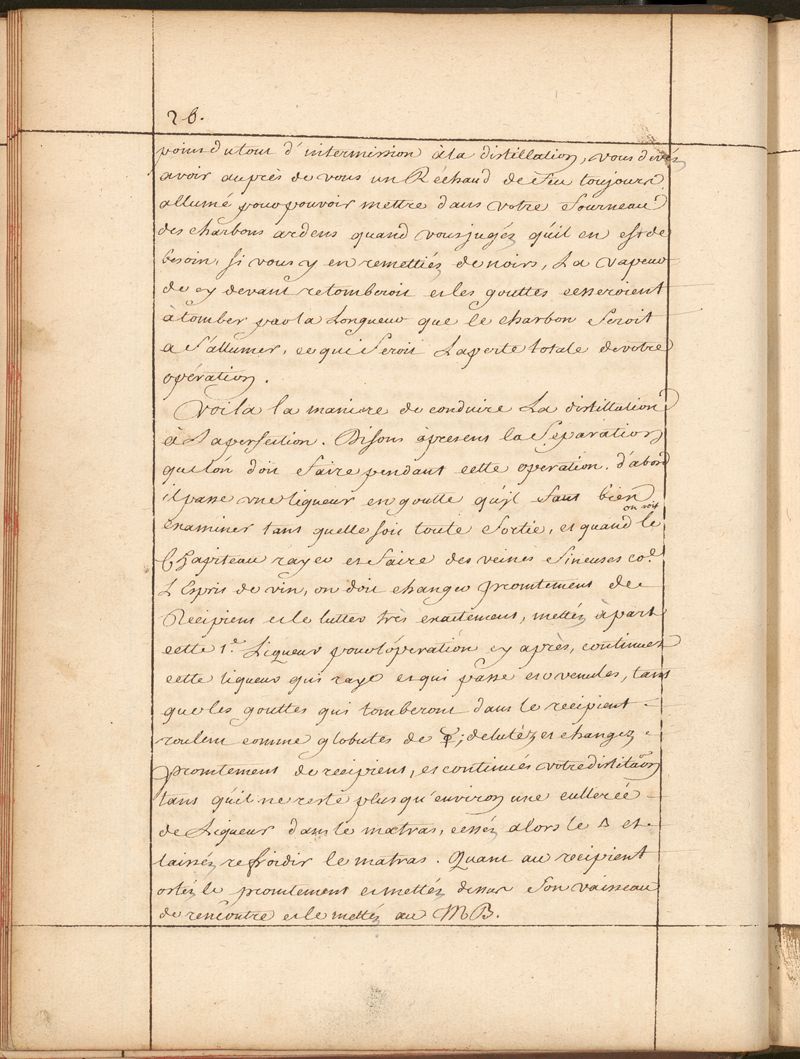 28.
point du tout d'intermission à la distillation, vous devés
avoir auprès de vous un Réchaud de feu toujours
allumé pour pouvoir mettre dans votre fourneau
des charbons ardens quand vous jugéz qu'il en est de
besoin, si vous y en remettiéz de noirs, La vapeur
de cy devant retomberoit et les gouttes cesseroient
à tomber par la Longueur que le charbon seroit
a s'allumer, ce qui seroit La perte totale de votre
opération.
Voila la maniere de conduire La distillation
à La perfection. Disons àpresent la séparation
que l'ón doit faire pendant cette operation. d'abord
il passe une liqueur en goutte qu'il faut bien
examiner tant quelle soit toute sortie, et quand on voit le
Chapiteau rayer et faire des veines sineuses co.e
L'Esprit de vin, on doit changer promtement de
Recipient et le lutter très exactement, mettéz àpart
cette 1.e Liqueur pour l'ópération cy après, continuez
cette liqueur qui raye et qui passe en venules, tant
que les gouttes qui tomberont dans le recipient
roulent comme globules de ☿, delutéz et changez
promtement de recipient, et continués votre distilaōn
tant qu'il ne reste plus qu'environ une culleréé
de Liqueur dans le matras, cesséz alors le △ et
laisséz refroidir le matras. Quant au recipient
ostéz le promtement et mettéz dessus son vaisseau
de rencontre et le mettéz au MB.